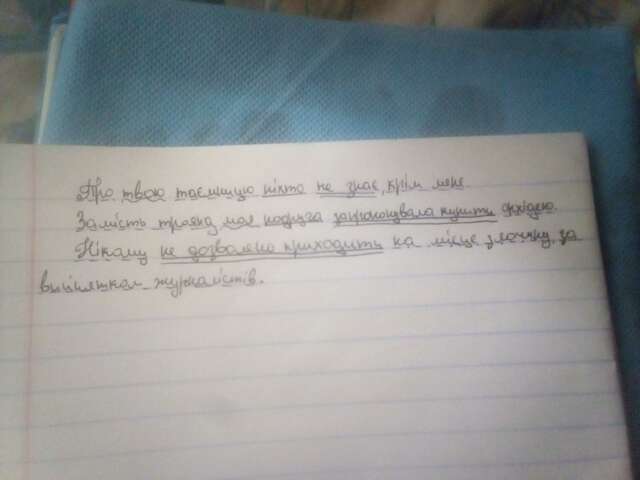 Про твою таємницю ніхто не знає, крім мене.
Замість троянд моя подруга запропонувала купити орхідею.
Нікому не дозволено приходити на місце злочину, за
винятком журналістів.